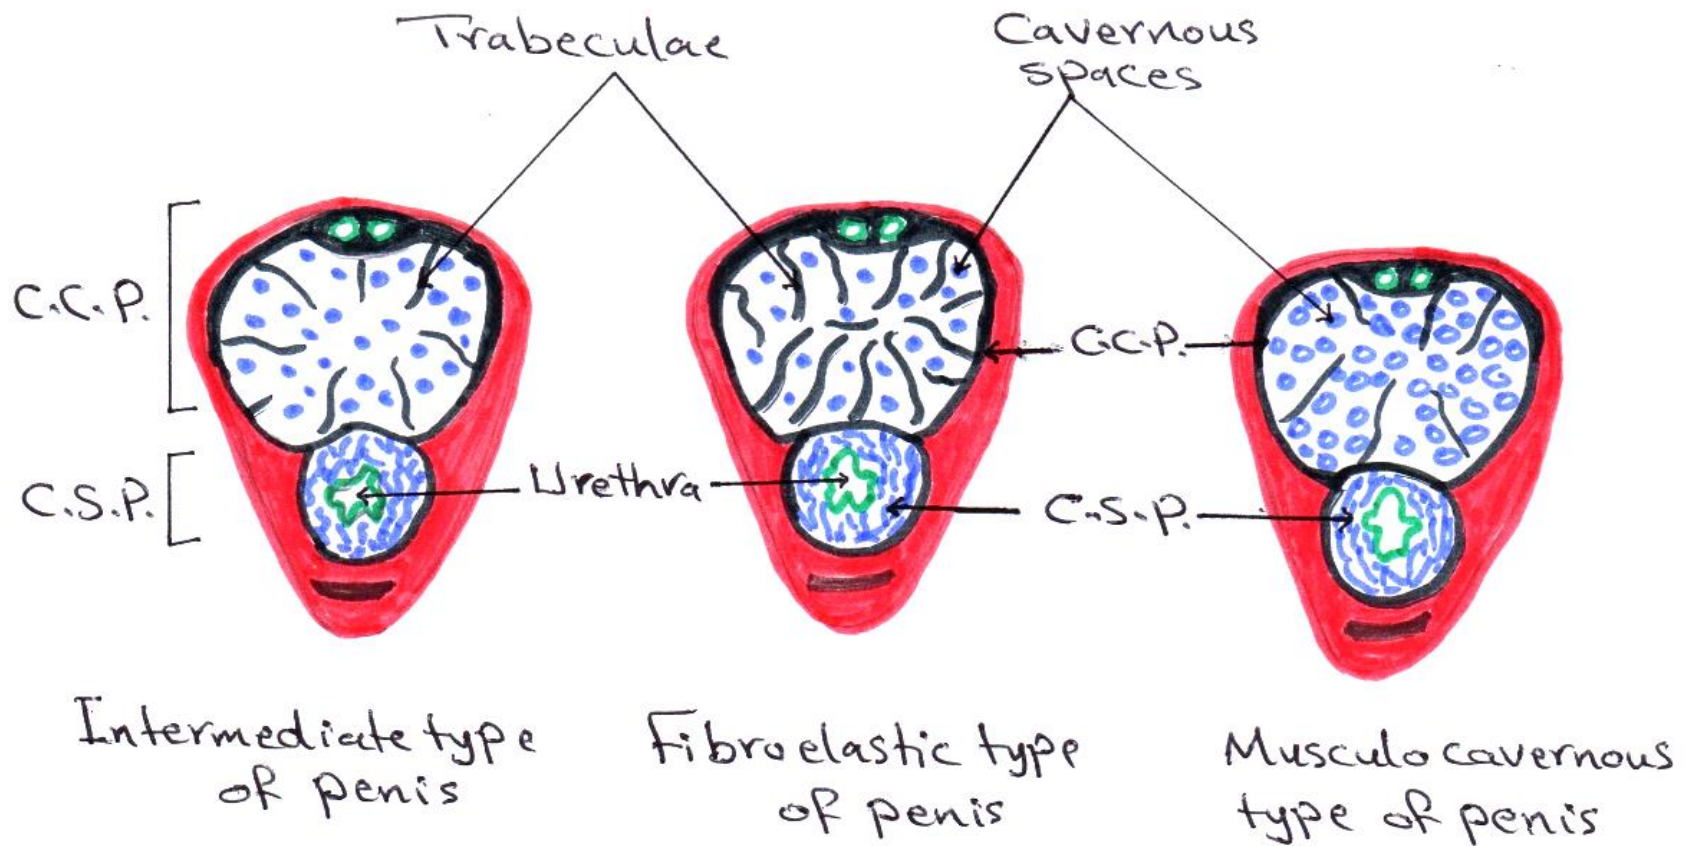 Trabeculae
Cavernous
spaces
C.C.P.
C.C.P.
C.S.P.
Urethra
C.S.P.
Intermediate type
of penis
Fibroelastic type
of penis
Musculo cavernous
type of penis